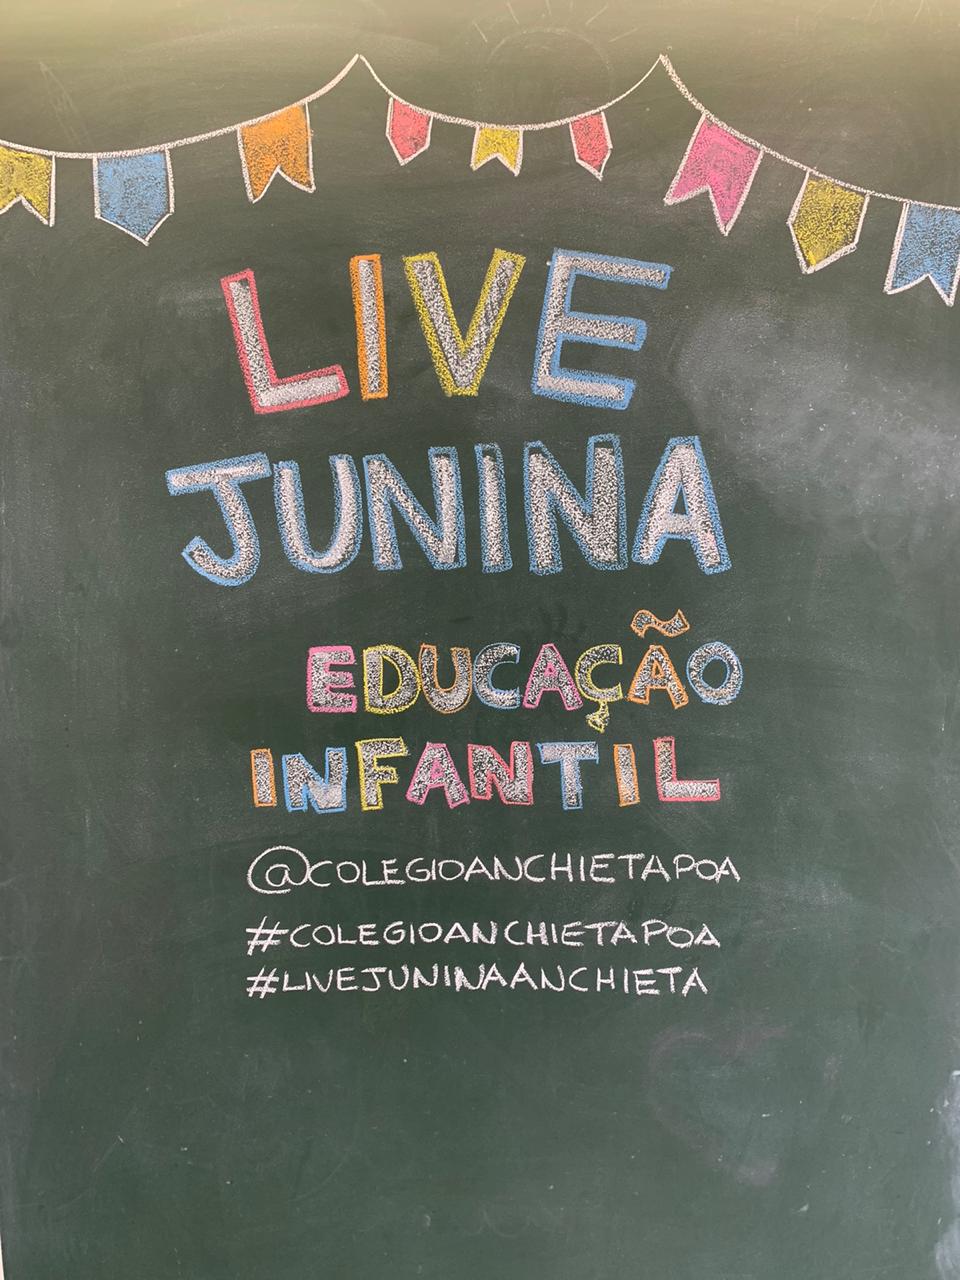 LIVE
JUNINA
EDUCAÇÃO
INFANTIL
@COLEGIOANCHIETAPOA
#COLEGIOANCHIETAPOA
#LIVEJUNINAANCHIETA